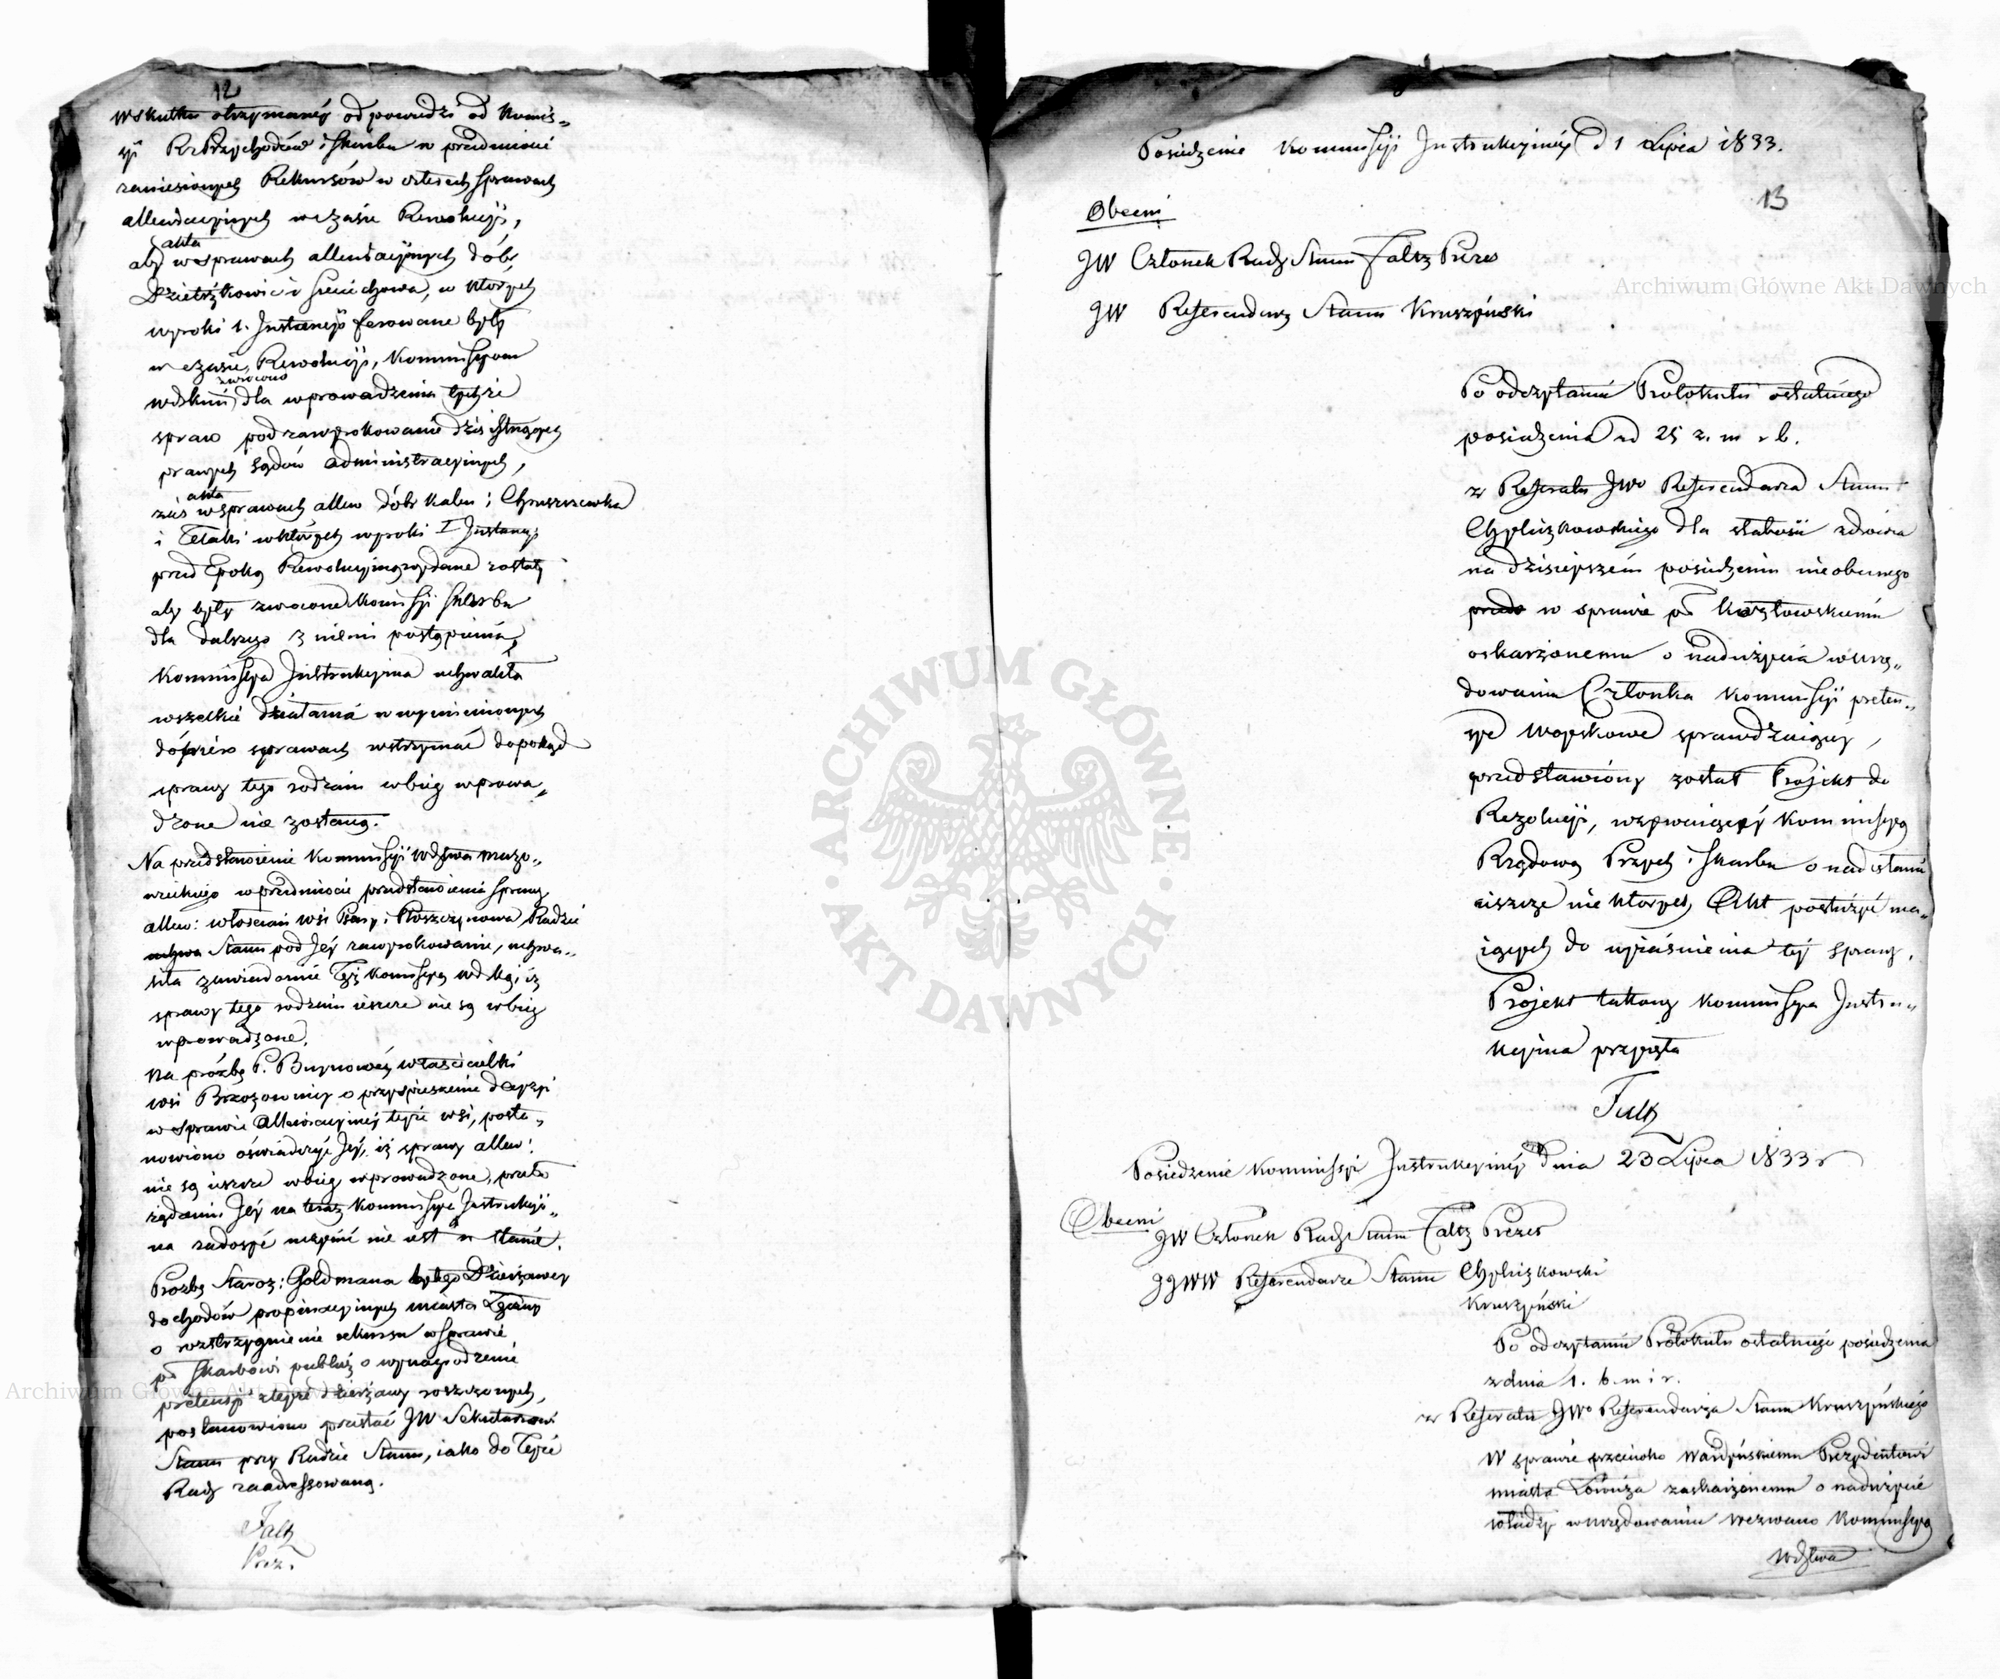 12
w skutku otrzymanéj odpowiedzi od Kommis-
syi Rz. Przychodów i Skarbu w przedmiocie
zaniesionych Rekursów w czterech sprawach
allewiacyjnych w czasie Rewolucyi,
akta
aby w sprawach allewiacyjnych dóbr
Dzietrzkowic i Sieciechowa, w których
wyroki 1. Instancyi ferowane były
w czasie Rewolucyi, Kommissyom
zwrócono
wdzkim dla wprowadzenia tychże
spraw pod zawyrokowanie dziś istnących
prawych sądów administracyjnych,
akta
zaś w sprawach allew dóbr Kalen i Chruszczewka
i w których wyroki I Instancyi
przed Epoką Rewolucyiną wydane zostały
aby były zwrócone Komissyi Skarbu
dla dalszego z niemi postąpienia,
Kommissya Instrukcyina uchwaliła
wszelkie działania w wymienionych
sprawach wstrzymać dopokąd
sprawy tego rodzaiu w bieg wprowa-
dzone nie zostaną.
Na przedstawienie Kommissyi Wdztwa Mazo-
wieckiego w przedmiocie przedstawienia sprawy
allew: włościan wsi i Płoszczynowa Radzie
Stanu pod Jey zawyrokowanie, uchwa-
liła zawiadomić Tęż Komissyą Wdzką, iż
sprawy tego rodzaiu ieszcze nie są w bieg
wprowadzone.
Na proźbę P. Buynowéy właścicielki
wsi o przyspieszenie decyzyi
w sprawie Allewiacyinéy teyże wsi, posta-
nowiono oświadczyć Jéy, iż sprawy allew:
nie są ieszcze w bieg wprowadzone, przeto
żądaniu Jéy na teraz Kommissya Instrukcyi-
na zadosyć uczynić nie iest w stanie.
Proźbę Staroz: Goldmana byłego Dzierżawcy
dochodów propinacyinych miasta
o rozstrzygnienie rekursu w sprawie
po Skarbowi publicz o wynagrodzenie
pretensyi z teyże dzierżawy roszczonych,
postanowiono przesłać JW Sekretarzowi
Stanu przy Radzie Stanu, iako do Teyże
Rady zaadressowaną.
Faltz
Prez.
Posiedzenie Kommissyi Instrukcyinéy d 1 Lipca 1833.
13
Obecni
JW Członek Rady Stanu Faltz Prezes
JW Referendarz Stanu Kruszyński
Po odczytaniu Protokułu ostatniego
posiedzenia z d 25 z. m r b.
z Referatu JWo Referendarza Stanu
Chyliczkowskiego dla słabości zdrowia
na dzisieyszém posiedzeniu nieobecnego
w sprawie po Kozłowskiemu
oskarżonemu o nadużycia w urzę-
dowaniu Członka Kommissyi preten-
sye Woyskowe sprawdzaiącéy,
przedstawiony został Projekt do
Rezolucyi, wzywaiący Kommissyą
Rządową Przych i Skarbu o nadesłanie
ieszcze niektórych Akt posłużyć ma-
iących do wyiaśnienia téy sprawy.
Projekt takowy Kommissya Instru-
kcyina przyięła
Faltz
Posiedzenie Kommissyi Instrukcyinéy dnia 23 Lipca 1833 r
Obecni
JW Członek Rady Stanu Faltz Prezes
JJWW Referendarze Stanu Chyliczkowski
Kruszyński
Po odczytaniu Protokułu ostatniego posiedzenia
z dnia 1. b. m i r.
z Referatu JWo Referendarza Stanu Kruszyńskiego
W sprawie przeciwko Wardyńskiemu Prezydentowi
miasta Łowicza zaskarżonemu o nadużycie
władzy w urzędowaniu wezwano Kommissyą
Wdztwa